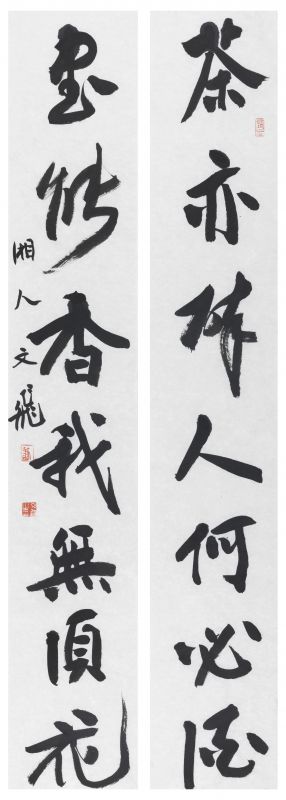 茶亦醉人何必酒
書能香我無須花
湘人文飛